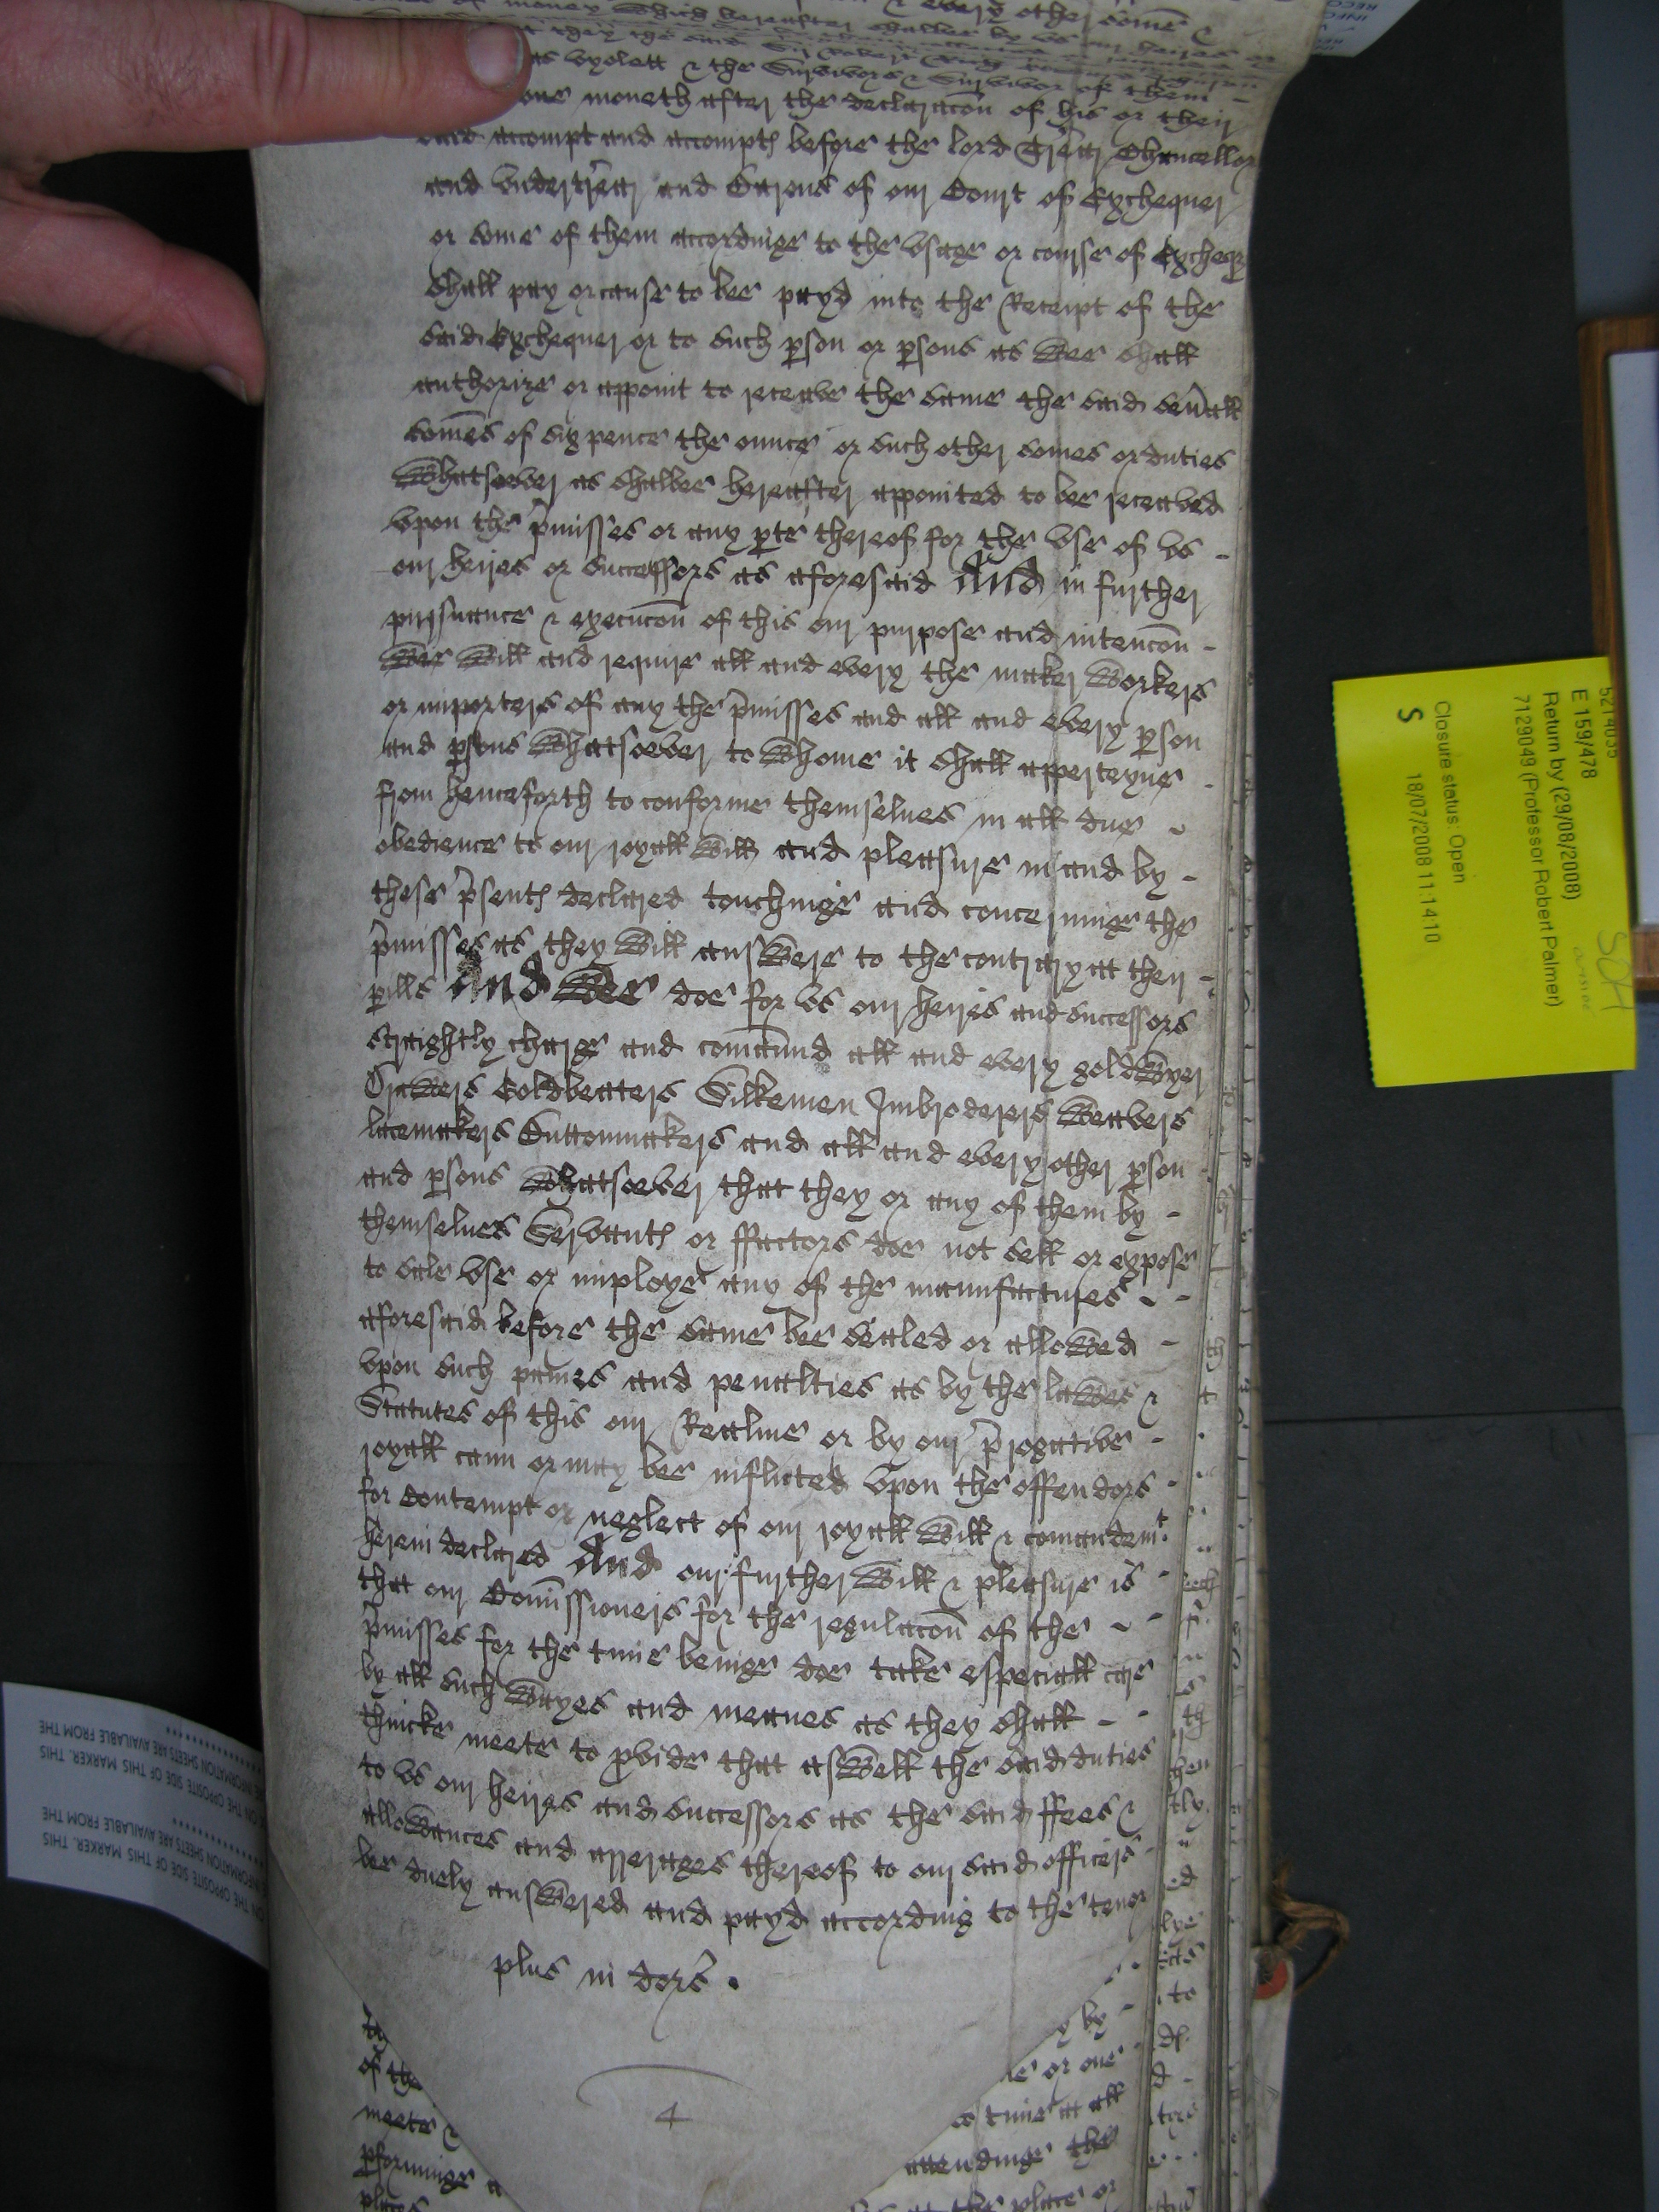 of money which hereafter shalbee by us our heires or
t they the said Sir
vyolett & the Survivors & Survivor of them -
one moneth after the declaracōn of his or their
said accompt and accompts before the lord Trēār Chancellor
and Vndertrēār and Barons of our Court of Exchequer
or some of them accordinge to the vsage or course of Excheqr
shall pay or cause to bee payd into the Receipt of the
said Exchequer or to such pson or psons as Wee shall
authorize or appoint to receave the same the said seūall
somēs of six pence the ounce or such other somes or duties
Whatsoever as shalbee hereafter appointed to bee receaved
vpon the p̄misses or any pte thereof for the vse of vs -
our heires or successors as aforesaid And in further
pursuance & execucōn of this our purpose and intencōn -
Wee Will and require all and every the maker Workers
or importers of any the p̄misses and all and every pson
and psons Whatsoever to Whome it shall apperteyne -
from henceforth to conforme themselues in all due -
obedience to our royall Will and pleasure in and by -
these p̄sents declared touchinge and concerninge the
p̄misses as they Will answere to the contrary at their -
pills And Wee doe for vs our heires and successors
straightly charge and comaūnd all and every goldwyer
Drawers Goldbeaters Silkemen Imbroderers Weavers
lacemakers Buttonmakers and all and every other pson -
and psons Whatsoever that they or any of them by -
themselues Servants or ffactors doe not sell or expose
to sale vse or imploye any of the manufactures - -
aforesaid before the same bee sealed or allowed -
vpon such paines and penalties as by the lawes &
Statutes of this our Realme or by our p̄rogative -
royall cann or may bee inflicted vpon the offendors -
for contempt or neglect of our royall Will & comandemt
herein declared And our further Will & pleasure is -
that our Comīssioners for the regulacōn of the - -
p̄misses for the time beinge doe take especiall care
by all such Wayes and meanes as they shall - -
thincke meete to pvide that asWell the said duties
to vs our heires and successors as the said ffees &
allowances and arrerages thereof to our said officers -
bee duely answered and payd according to the tenor
plus in dors̄ .
4
of the
y by -
meete &
e or one
pforminge a
s time at all
places
attendinge the
the place or
E 159/478
Return by (29/08/2008)
7129049 (Professor Robert Palmer)
Closure status: Open
S
18/07/2008 11:14:10
ON THE OPPOSITE SIDE OF THIS MARKER. THIS
INFORMATION SHEETS ARE AVAILABLE FROM THE